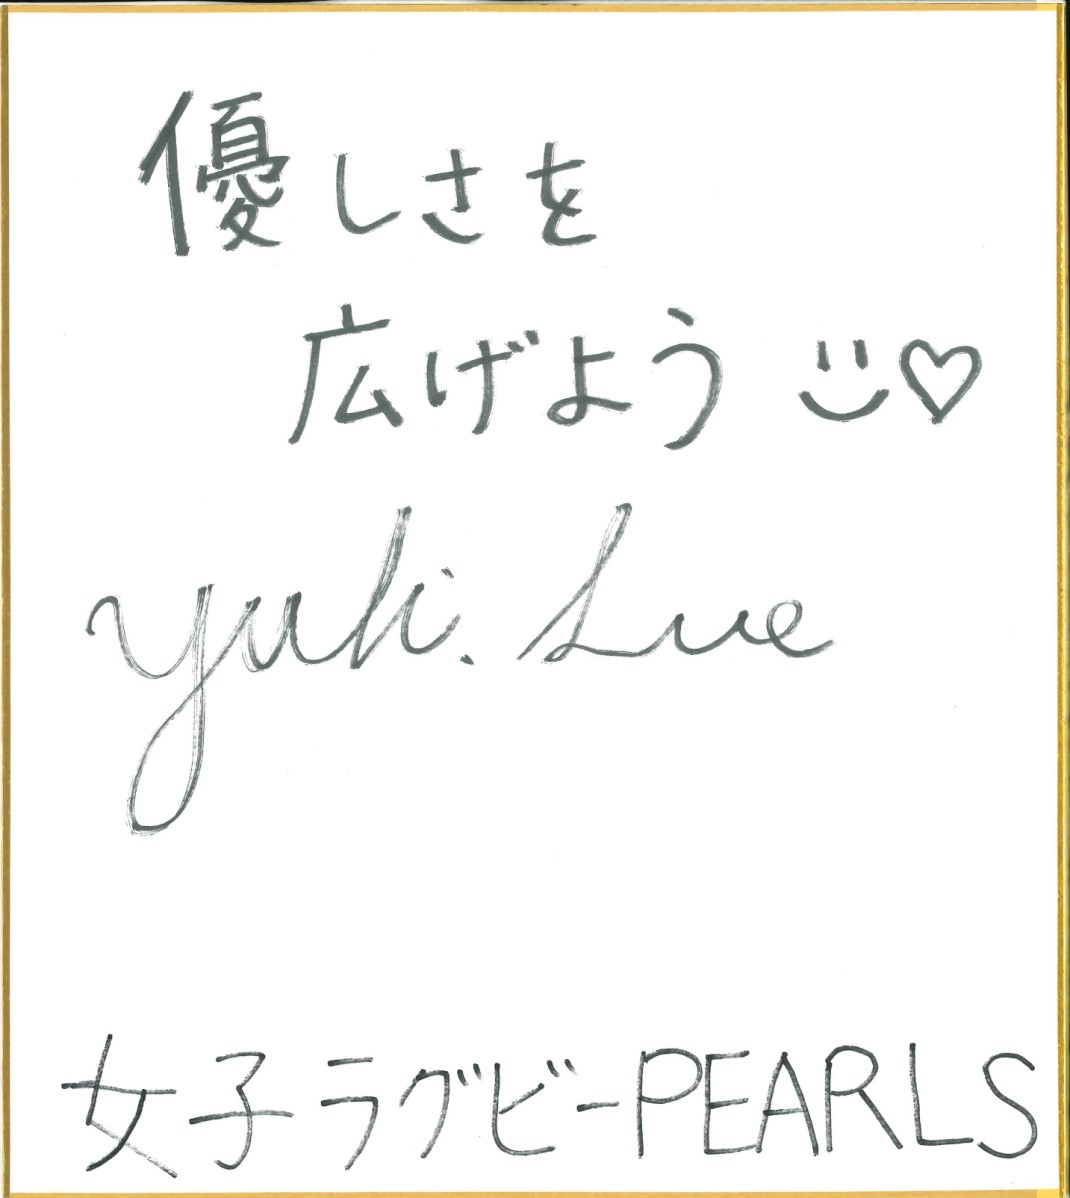 優しさを
広げよう
Yuki. Sue
女子ラグビーPEARLS